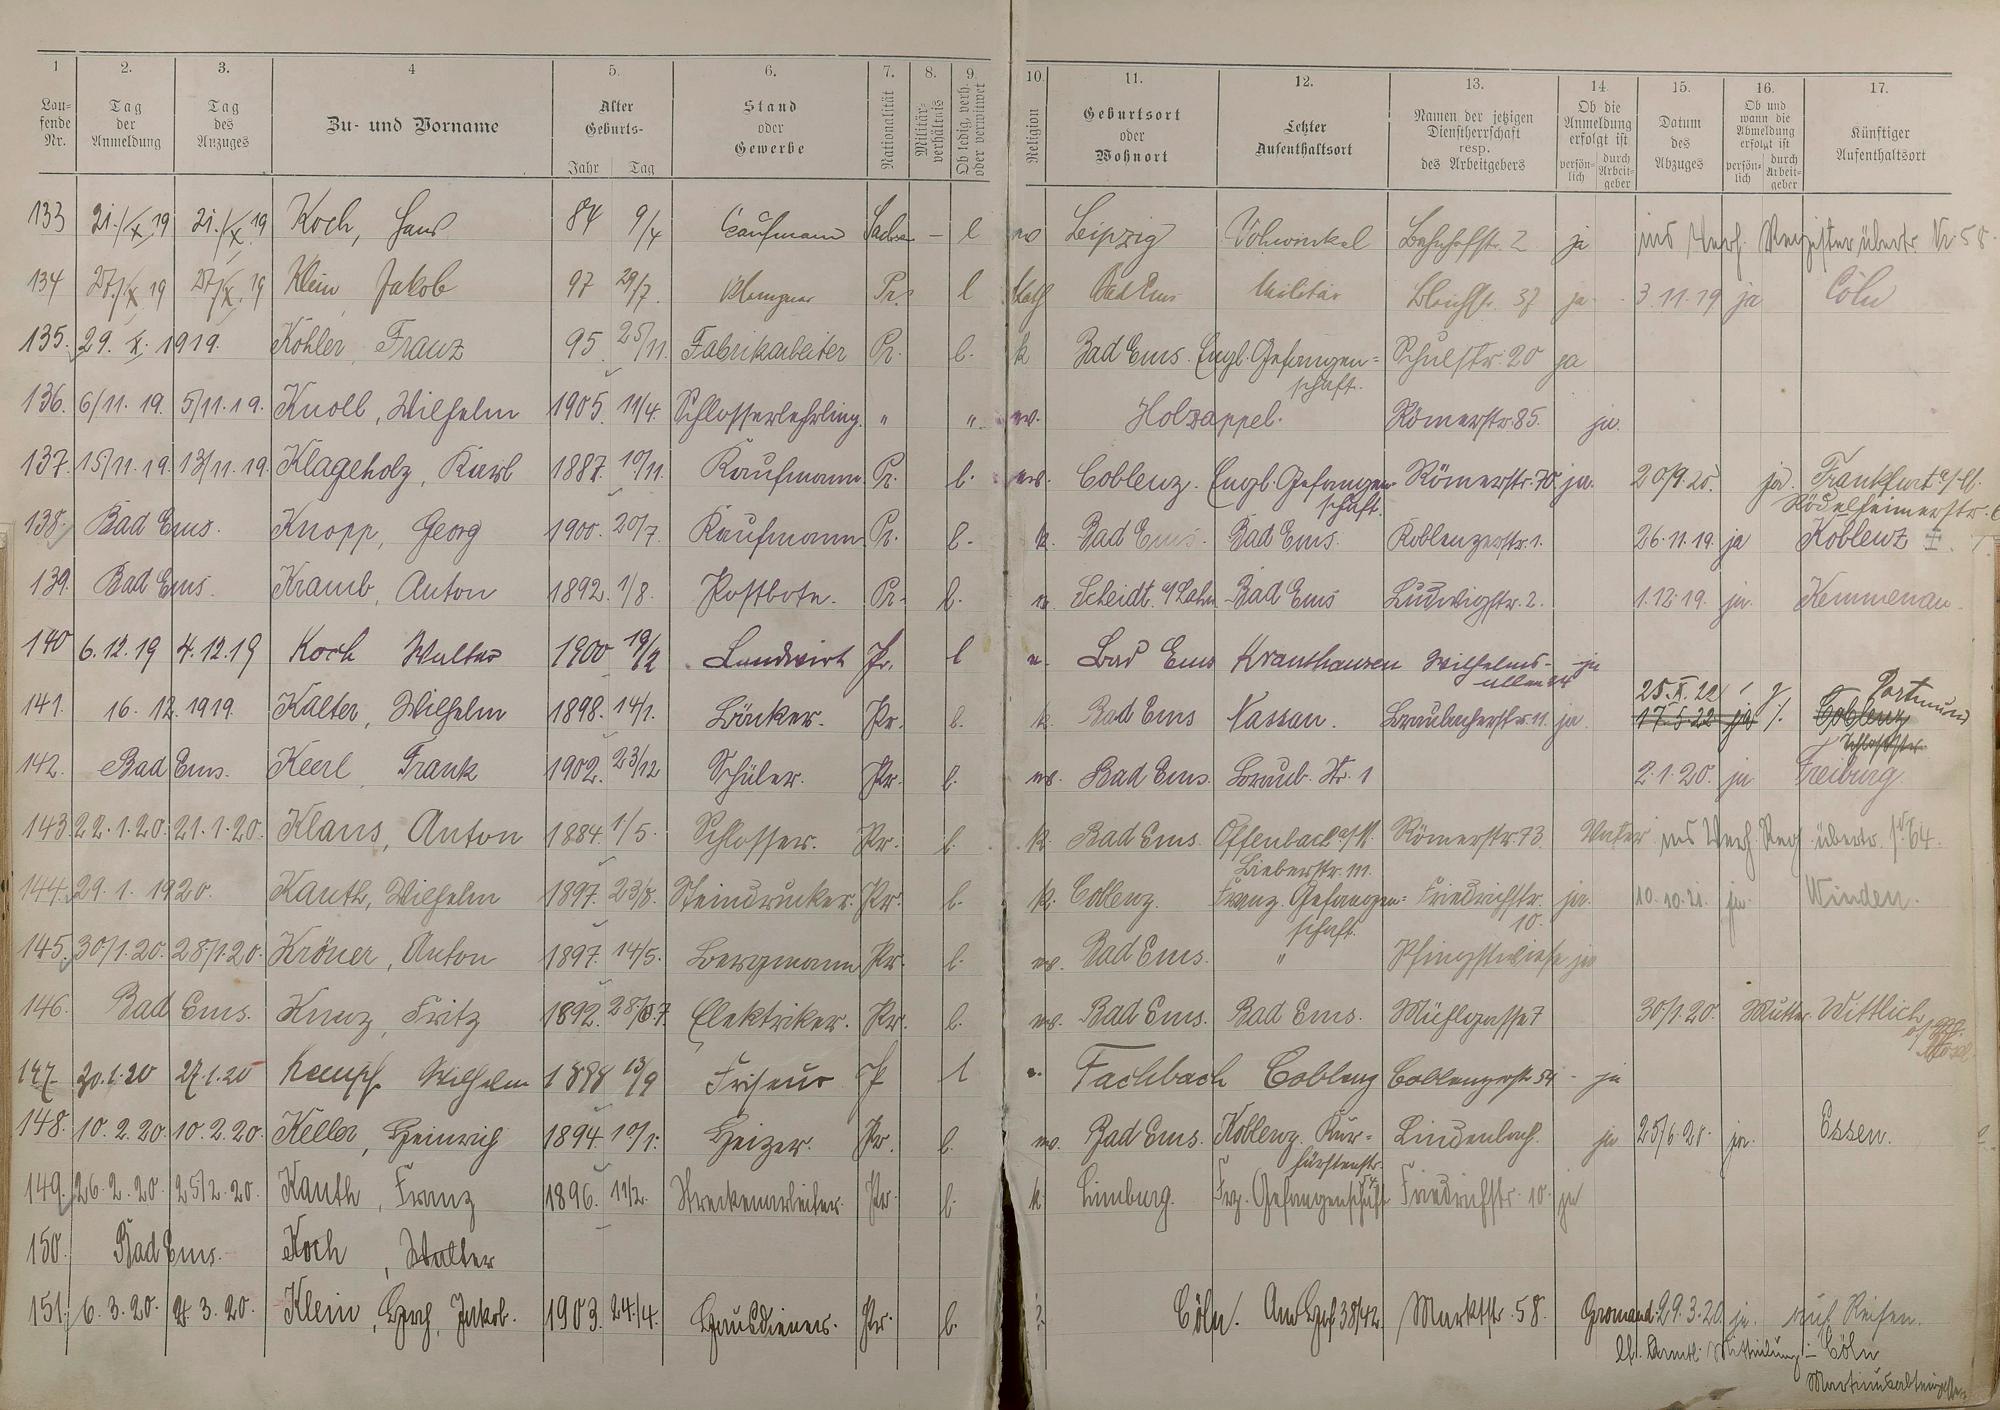 1 2. 3. 4 5. 6. 7. 8. 9. 10. 11. 12. 13. 14. 15. 16. 17.
Lau-fende Nr. Tag der Anmeldung Tag des Anzuges Zu- und Vorname Alter Geburts- Jahr Tag Stand oder Gewerbe Nationalität Militär-verhältnis Ob ledig, verh. oder verwitwet Religion Geburtsort oder Wohnort Letzter Aufenthaltsort Namen der jetzigen Dienstherrschaft resp. des Arbeitgebers Ob die Anmeldung erfolgt ist persön-lich durch Arbeit-geber Datum des Abzuges Ob und wann die Abmeldung erfolgt ist persön-lich durch Arbeit-geber Künftiger Aufenthaltsort
133 21./X.19 21./X.19 Koch, Hans 84 9/4 Kaufmann Sachse – l ev Leipzig Vohwinkel Bahnhofstr. 2 ja ins Verh. Register übertr. Nr. 58.
134 27./X.19 27./X.19 Klein Jakob 97 29/7. Pr. l Kath Bad Ems Militär Bleichstr. 37 ja 3.11.19 ja Cöln
135. 29. X. 1919. Köhler, Franz 95. 25/11. Fabrikarbeiter Pr. l. k Bad Ems. Engl. Gefangen= Schulstr. 20 ja
schaft.
136. 6/11. 19. 5/11.19. Knoll, Wilhelm 1905. 11/4. Schlosserlehrling. " ". ev. Holzappel. Römerstr. 85. ja.
137. 15/11.19. 13/11.19. Klageholz, Karl 1887. 10/11. Kaufmann Pr. l. ev. Coblenz. Engl. Gefangen- Römerstr. 70. ja. 20/9.20. ja. Frankfurt a/M.
schaft. Rödelheimerstr.
138. Bad Ems. Knopp, Georg 1900. 20/7. Kaufmann Pr. l. k. Bad Ems. Bad Ems. Koblenzerstr. 1. 26.11.19. ja Koblenz
139. Bad Ems. Kramb, Anton 1892. 1/8. Postbote. Pr. l. Scheidt. a/Lahn Bad Ems Ludwigstr. 2. 1.12.19. ja. Kemmenau.
140 6.12.19 4.12.19 Koch Walter 1900 19/2 Landwirt Pr. l e. Bad Ems Kranthausen Wilhelms- ja
allee 24
141. 16. 12. 1919. Kalter, Wilhelm 1898. 14/1. Bäcker. Pr. l. k. Bad Ems Nassau. Braubacherstr. 11. ja. 25.X.22 Dortmund
17.5.22 ja Coblenz
142. Bad Ems. Keerl, Frank 1902. 23/12 Schüler. Pr. l. ev. Bad Ems. Braub. Str. 1 2.1.20. ja Freiburg
143. 22.1.20. 21.1.20. Klaus, Anton 1884. 1/5. Schlosser. Pr. l. k. Bad Ems. Offenbach a/M. Römerstr. 73. Vater ins Verh. Reg. übertr. Nr. 64.
Bieberstr. 111.
144. 29. 1. 1920. Kauth, Wilhelm 1897. 23/8. Steindrucker. Pr. l. k. Coblenz. Franz. Gefangen= Friedrichstr. ja. 10.10.21. ja. Winden.
schaft. 10.
145. 30/1.20. 28/1.20. Kröner, Anton 1897. 14/5. Bergmann Pr. l. ev. Bad Ems. " Pfingstwiese ja
146. Bad Ems. Kunz, Fritz 1892. 28/7. Elektriker. Pr. l. ev. Bad Ems. Bad Ems. Mühlgasse 7 30/1.20. Mutter Wittlich
147. 30.1.20 27.1.20 Kempf. Wilhelm 1898 13/9 Friseur P l e. Fachbach Coblenz Coblenzerstr. 54 - ja
148. 10.2.20. 10.2.20. Keller, Heinrich 1894. 10/1. Heizer. Pr. l. ev. Bad Ems. Koblenz. Kur= Lindenbach. ja 25/6.20. ja. Essen.
fürstenstr.
149. 26.2.20. 25/2.20. Kauth, Franz 1896. 11/2. Streckenarbeiter. Pr. l. k Limburg. Frz. Gefangenschaft Friedrichstr. 10. ja
150. Bad Ems. Koch, Walter
151. 6.3.20. 4.3.20. Klein, Hch. Jakob. 1903. 24./4. Hausdiener. Pr. l. ? Cöln/. Am Hof 38/42. Marktstr. 58. 29.3.20. ja. auf Reisen.
Mitteilung:– Cöln